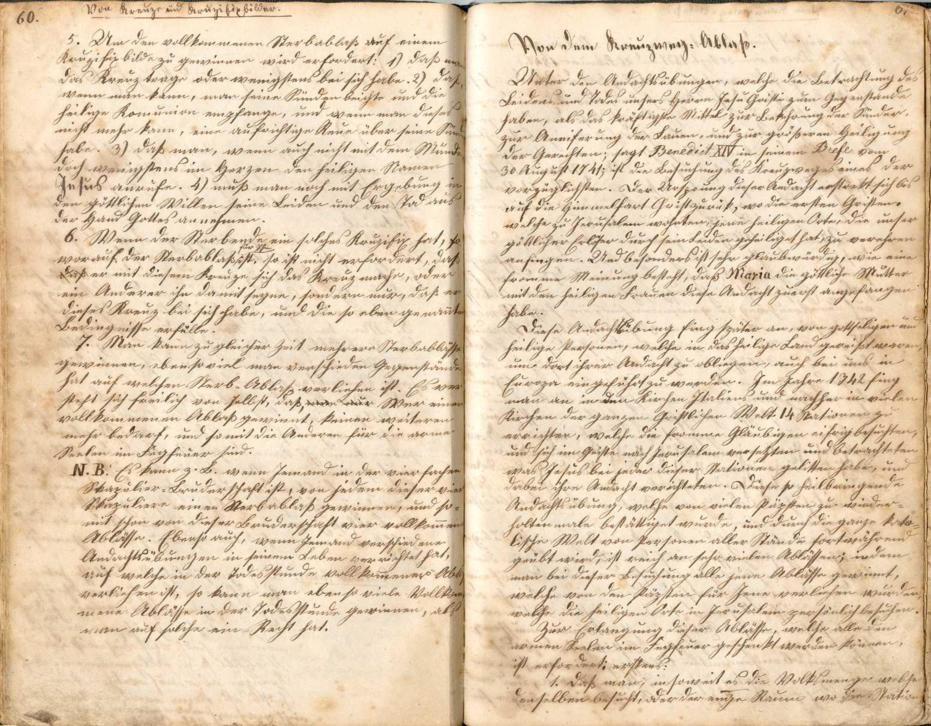 60.
Von Kreuze und Kruzifixbilder.
5. Um den vollkommenen Sterbablaß auf einem
Kruzifixbilde zu gewinnen wird erfordert: 1) daß man
das Kreuz trage oder wenigstens bei sich habe. 2) daß,
wenn man kann, man seine Sünden beichte und die
heilige Komunion empfange, und wenn man dieses
nicht mehr kann, eine aufrichtige Reue über seine Sünden
habe. 3) daß man, wenn auch nicht mit dem Munde
doch wenigstens im Herzen den heiligen Namen
Jesus anrufe. 4) muß man noch mit Ergebung in
den göttlichen Willen seine Leiden und den Tod aus
der Hand Gottes annehmen.
6. Wenn der Sterbende ein solches Kruzifix hat,
worauf der Sterbablaß ist, so ist nicht erfordert, daß
daß er mit diesem Kreuze sich das Kreuz mache, oder
ein Anderer ihn damit segne, sondern nur, daß er
dieses Kreuz bei sich habe, und die so eben genannten
Bedingnisse erfülle.
7. Man kann zu gleicher Zeit mehrere Sterbablässe
gewinnen, ebensoviel man verschiedene Gegenstände
hat auf welchen Sterb-Ablaß verliehen ist. Es ver
steht sich freilich von selbst, daß, Wer einen
vollkommenen Ablaß gewinnt, keinen weiteren
mehr bedarf, und somit die Anderen für die armen
Seelen im Fegfeuer sind.
N.B. Es kann z. B. wenn Jemand in der vierfachen
Skapulier-Bruderschaft ist, von jedem dieser vier
Skapuliere einen Sterbablaß gewinnen, und so-
mit schon von dieser Bruderschaft vier vollkommene
Ablässe. Ebenso auch, wenn Jemand verschiedene
Andachtsübungen in seinem Leben verrichtet hat,
auf welche in der Todesstunde vollkommener Ablaß
verliehen ist, so kann man ebenso viele vollkom
mene Ablässe in der Todesstunde gewinnen, als
man auf solche ein Recht hat.
Von dem Kreuzweg-Ablaß.
Unter den Andachtsübungen, welche die Betrachtung des
Leidens und Todes unsers Herrn Jesu Christi zum Gegenstande
haben, als das kräftigste Mittel zur Bekehrung der Sünder
zur Aneiferung der Lauen, und zur größeren Heiligung
der Gerechten, sagt Benedict XIV in seinem Breve vom
30 August 1741, ist die Besuchung des Kreuzweges eines der
vorzüglichsten. Der Ursprung dieser Andacht erstreckt sich bis
auf die Himmelfart Christi zurück, wo die ersten Christen,
welche zu Jerusalem wohnten, jene heiligen Orte, die unser
göttlicher Erlöser durch sein Leiden geheiligt hat, zu verehren
anfingen. Und besonders ist sehr glaubwürdig, wie eine
fromme Meinung besteht, daß Maria die göttliche Mutter
mit den heiligen Frauen diese Andacht zuerst angefangen
habe.
Diese Andachtsübung fing später an, von gottseligen und
heilige Personen, welche in das heilige Land gereist waren,
und dort ihrer Andacht zu obliegen, auch bei uns in
Europa eingeführt zu werden. Im Jahre 1742 fing
man an in den Kirchen Italiens und nachher in vielen
Kirchen der ganzen Christlichen Welt 14 Stationen zu
errichten, welche die fromme Gläubigen eifrig besuchten,
und sich im Geiste nach Jerusalem versetzten und betrachteten
was Jesus bei jeder dieser Stationen gelitten habe, und
dabei ihre Andacht verrichteten. Diese so heilbringende
Andachtsübung, welche von vielen Päpsten zu wieder-
holtenmale bestättiget wurde, und durch die ganze kato-
lische Welt von Personen aller Stände fortwährend
geübt wird, ist reich an sehr vielen Ablässen; indem
man bei dieser Besuchung alle jene Ablässe gewinnt,
welche von den Päpsten für Jene verliehen wurden,
welche die heiligen Orte in Jerusalem persönlich besuchen.
Zur Erlangung dieser Ablässe, welche alle den
armen Seelen im Fegfeuer geschenkt werden können,
ist erfordert, erstens:
1. Daß man, insoweit es die Volksmenge welche
denselben besucht, oder der enge Raum wo die Station